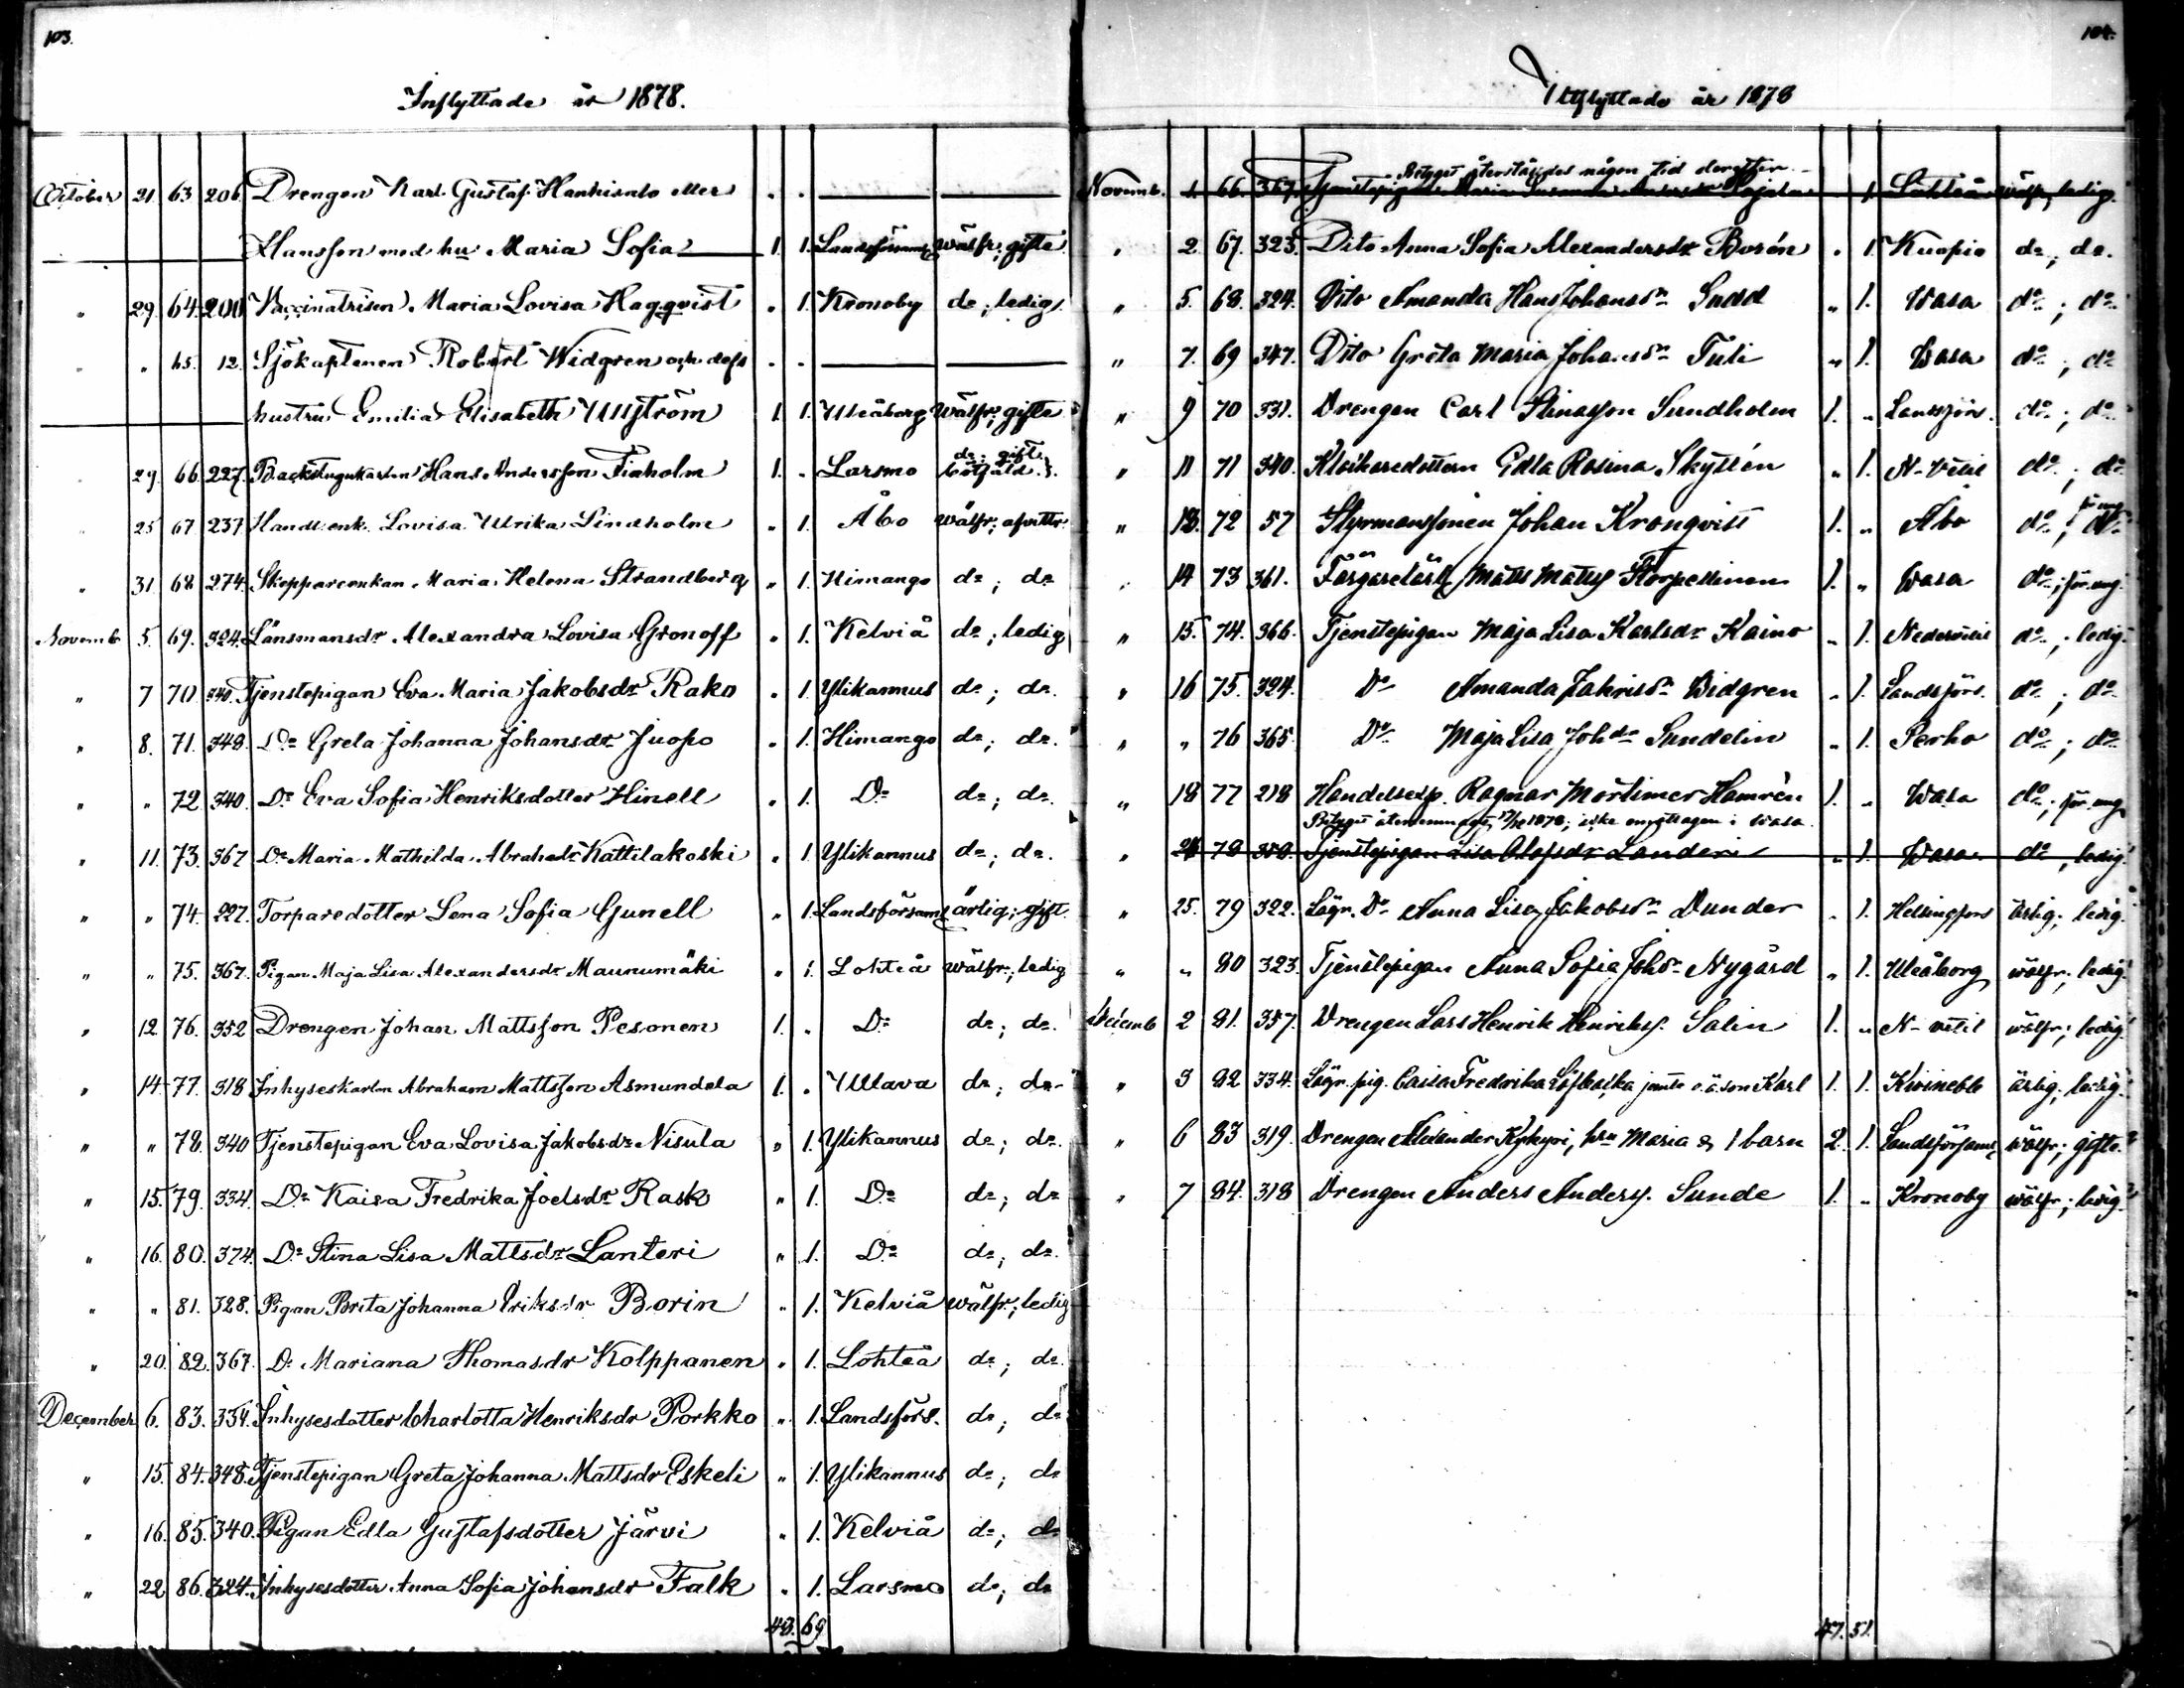 103.
Inflyttade år 1878.
October 21. 63 206. Drengen Karl Gustaf Hankisalo eller " "
Hansson med hu Maria Sofia 1. 1. Landsförsaml wälfr; gifte
" 29. 64. 200 Vaccinatrisen Maria Lovisa Hagqvist " 1. Kronoby do; ledig
" " 65. 12. Sjökaptenen Robert Widgren och dess " "
hustru Emilia Elisabeth Ullström 1. 1. Uleåborg wälfr; gifte
" 29. 66. 227. Backstugukarlen Hans Andersson Finholm 1. " Larsmo do; gift
" 25 67 237 Handl: enk. Lovisa Ulrika Lindholm " 1. Åbo wälfr;
" 31. 68. 274. Skepparenkan Maria Helena Strandberg " 1. Himango do; do
Novemb. 5. 69. 324. Länsmansdr Alexandra Lovisa Gronoff " 1. Kelviå do; ledig
" 7 70. 340. Tjenstepigan Eva Maria Jakobsdr Rako " 1. Ylikannus do; do.
" 8. 71. 348. Do Greta Johanna Johansdr Juopo " 1. Himango do; do.
" " 72 340. Do Eva Sofia Henriksdotter Hinell " 1. Do do; do.
" 11. 73. 367 Do Maria Mathilda Abrahdr Kattilakoski " 1. Ylikannus do; do.
" " 74. 227. Torparedotter Lena Sofia Gunell " 1. Landsförsaml ärlig; gift.
" " 75. 367. Pigan Maja Lisa Alexandersdr Maunumäki " 1. Lohteå wälfr; ledig
" 12. 76. 352 Drengen Johan Mattsson Pesonen 1. " Do do; do.
" 14. 77. 318 Inhyseskarlen Abraham Mattsson Asmundela 1. " Ullava do; do.
" " 78. 340 Tjenstepigan Eva Lovisa Jakobsdr Nisula " 1. Ylikannus do; do.
" 15. 79. 334. Do Kaisa Fredrika Joelsdr Rask " 1. Do do; do
" 16. 80. 374. Do Stina Lisa Mattsdr Lanteri " 1. Do do; do.
" " 81. 328. Pigan Brita Johanna Eriksdr Borin " 1. Kelviå wälfr; ledig
" 20. 82. 367. Do Mariana Thomasdr Kolppanen " 1. Lohteå do; do.
December 6. 83. 334. Inhysesdotter Charlotta Henriksdr Porkko " 1. Landsförs. do; do
" 15. 84. 348. Tjenstepigan Greta Johanna Mattsdr Eskeli " 1. Ylikannus do; do
" 16. 85. 340. Pigan Edla Gustafsdotter Järvi " 1. Kelviå do; do
" 22 86. 324. Inhysesdotter Anna Sofia Johansdr Falk " 1. Larsmo do; do
43. 69
104.
Utflyttade år 1878
Betyget återställdes någon tid derefter.
Novemb. 1. 66. 367. Tjenstepigan Maria Susanna Andersdr " 1. Lohteå wälfr; ledig.
" 2. 67. 323. Dito Anna Sofia Alexandersdr Borén " 1. Kuopio do; do.
" 5. 68. 324. Dito Amanda Hans Johansdr Sadd " 1. Wasa do; do.
" 7. 69 347. Dito Greta Maria Johansdr Tuli " 1. Wasa do; do
" 9 70 331. Drengen Carl Stinasson Sundholm 1. " Landsförs. do; do.
" 11 71 340. Klockaredottern Edla Rosina Skyttén " 1. N-Vetil do; do.
" 13. 72 57 Styrmanssonen Johan Kronqvist 1. " Åbo do; för ung
" 14 73 361. Färgarelärl. Matts Matts. Korpelinen 1. " Wasa do; för ung.
" 15. 74. 366. Tjenstepigan Maja Lisa Karlsdr Kaino " 1. Nedervetil do; ledig.
" 16 75. 324. Do Amanda Zakrisdr Widgren " 1. Landsförs. do; do.
" " 76 365. Do Maja Lisa Johdr Sundelin " 1. Perho do; do.
" 18 77 218 Handelsexp. Ragnar Mortimer Hamrén 1. " Wasa do; för ung
Betyget 1878; icke emottagen i Wasa.
" 21 78 350 Tjenstepigan Lisa Olofsdr Landeri " 1. Wasa do; ledig.
" 25. 79 322. Lägr. Do Anna Lisa Jakobsdr Dunder " 1. Helsingfors ärlig; ledig.
" " 80 323. Tjenstepigan Anna Sofia Johdr Nygård " 1. Uleåborg wälfr; ledig.
Decemb 2 81. 357. Drengen Lars Henrik Henrikss. Salin 1. " N-vetil wälfr; ledig.
" 3 82 334. Lägr. pig. Caisa Fredrika Löfbacka jemte o.ä. son Karl 1. 1. Kivinebb ärlig; ledig.
" 6 83 319. Drengen Alexander Kykyri, hu Maria & 1 barn 2. 1. Landsförsaml wälfr; gifte.
" 7 84. 318 Drengen Anders Anderss. Sunde 1. " Kronoby wälfr; ledig.
47. 51.